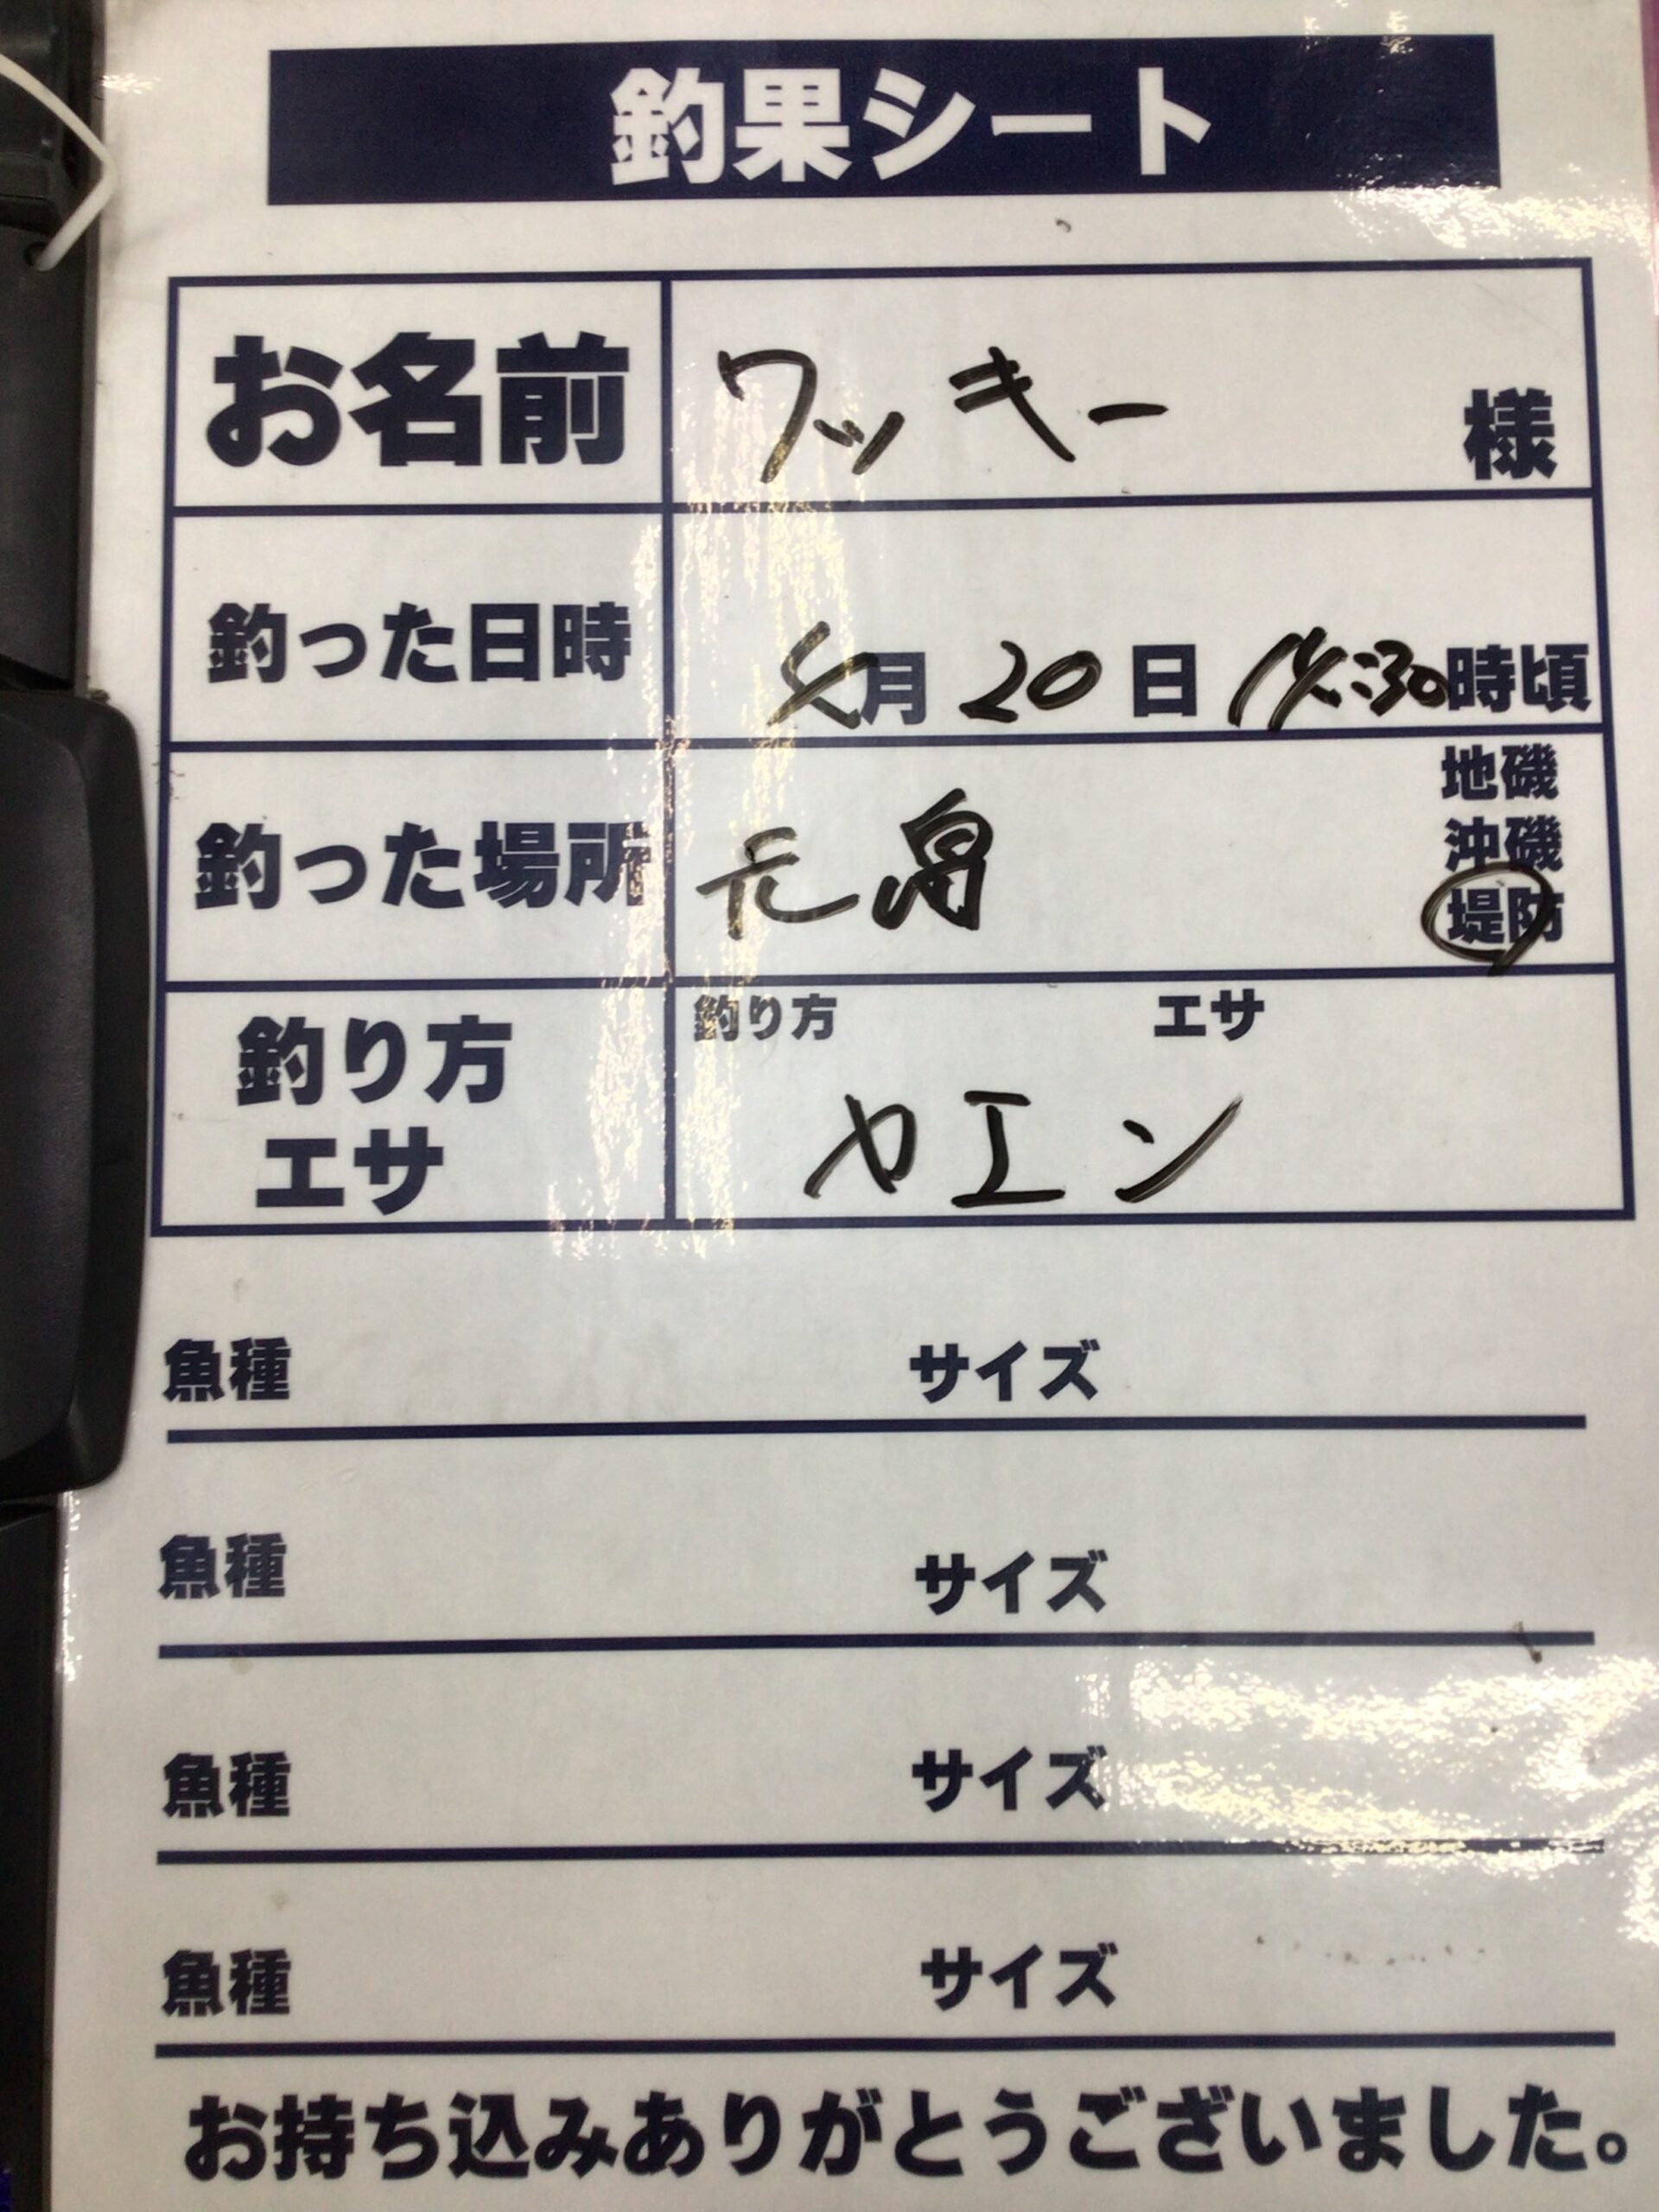 釣果シート
お名前 ワッキー 様
釣った日時 4月 20日 14:30時頃
地磯
沖磯
釣った場所 元
堤防
釣り方 エサ
釣り方
エサ
ヤエン
魚種 サイズ
魚種 サイズ
魚種 サイズ
魚種 サイズ
お持ち込みありがとうございました。